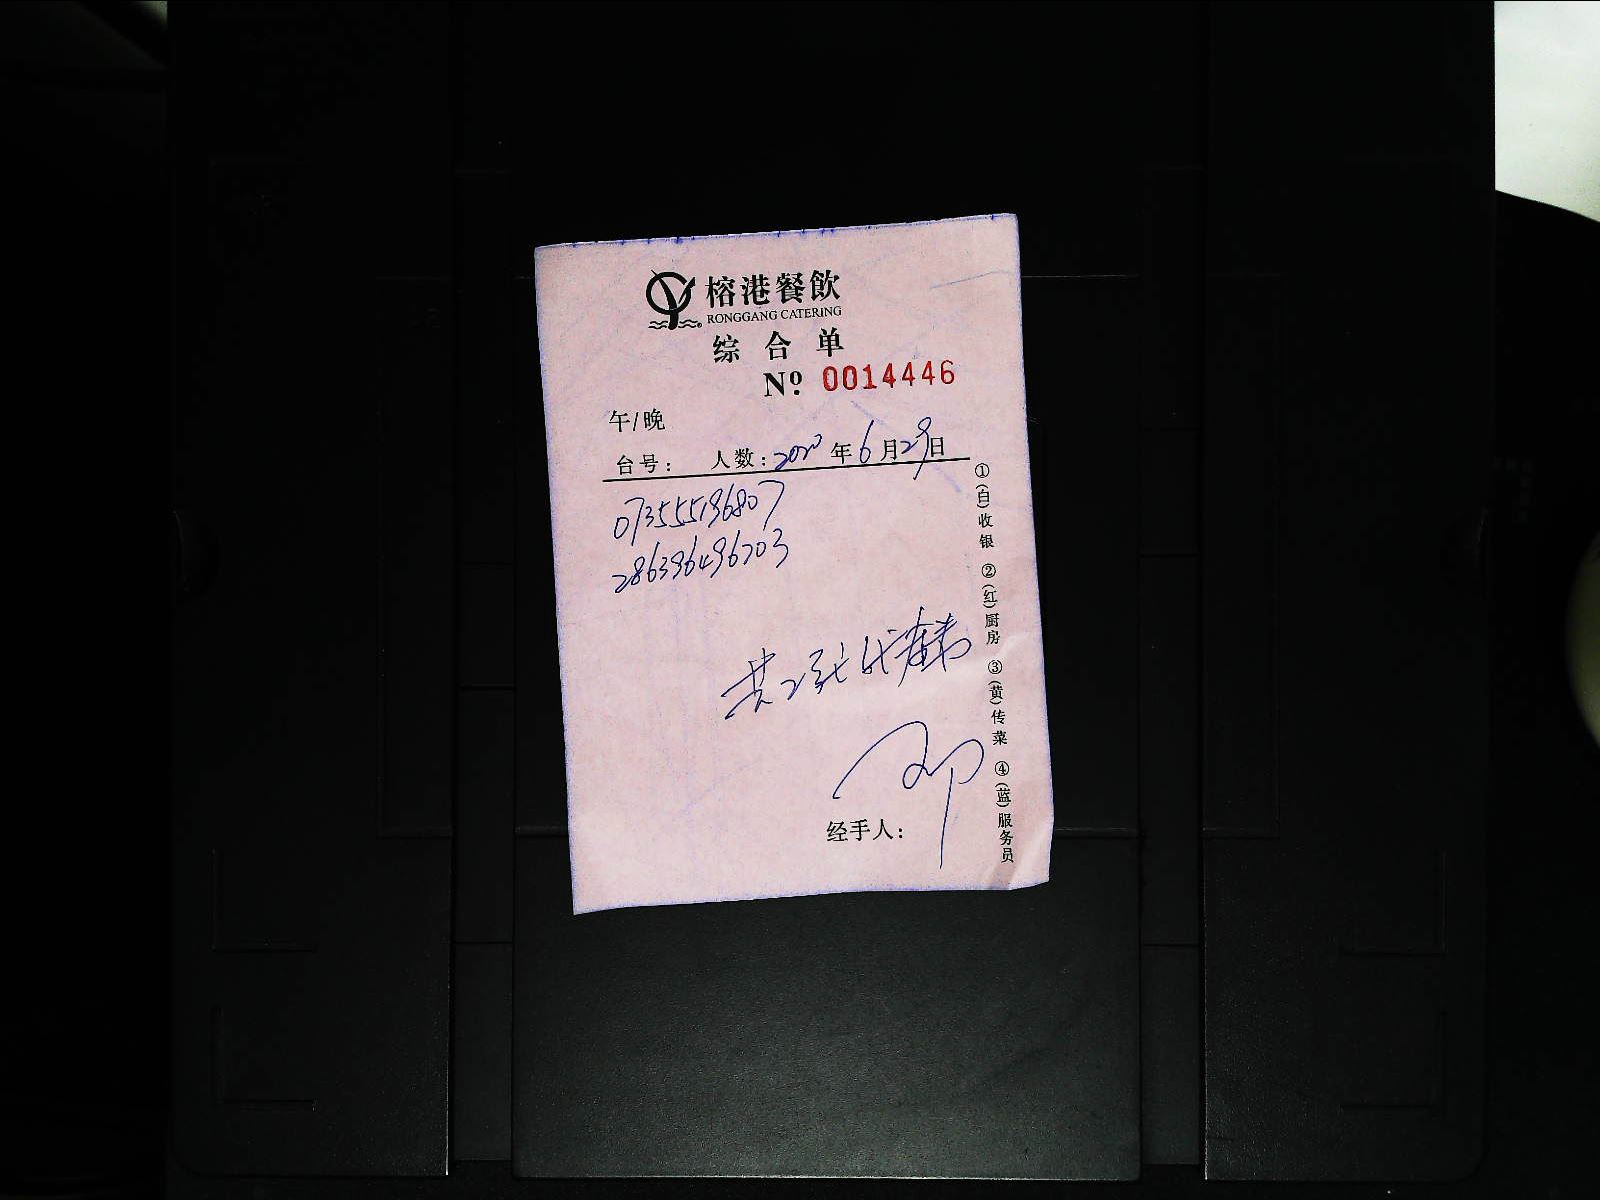 榕港餐飲
RONGGANG CATERING
综合单
Nº 0014446
午/晚
台号: 人数: 2020年6月29日
073555196807
286396496203
共2张代
经手人:
①(白)收银 ②(红)厨房 ③(黄)传菜 ④(蓝)服务员